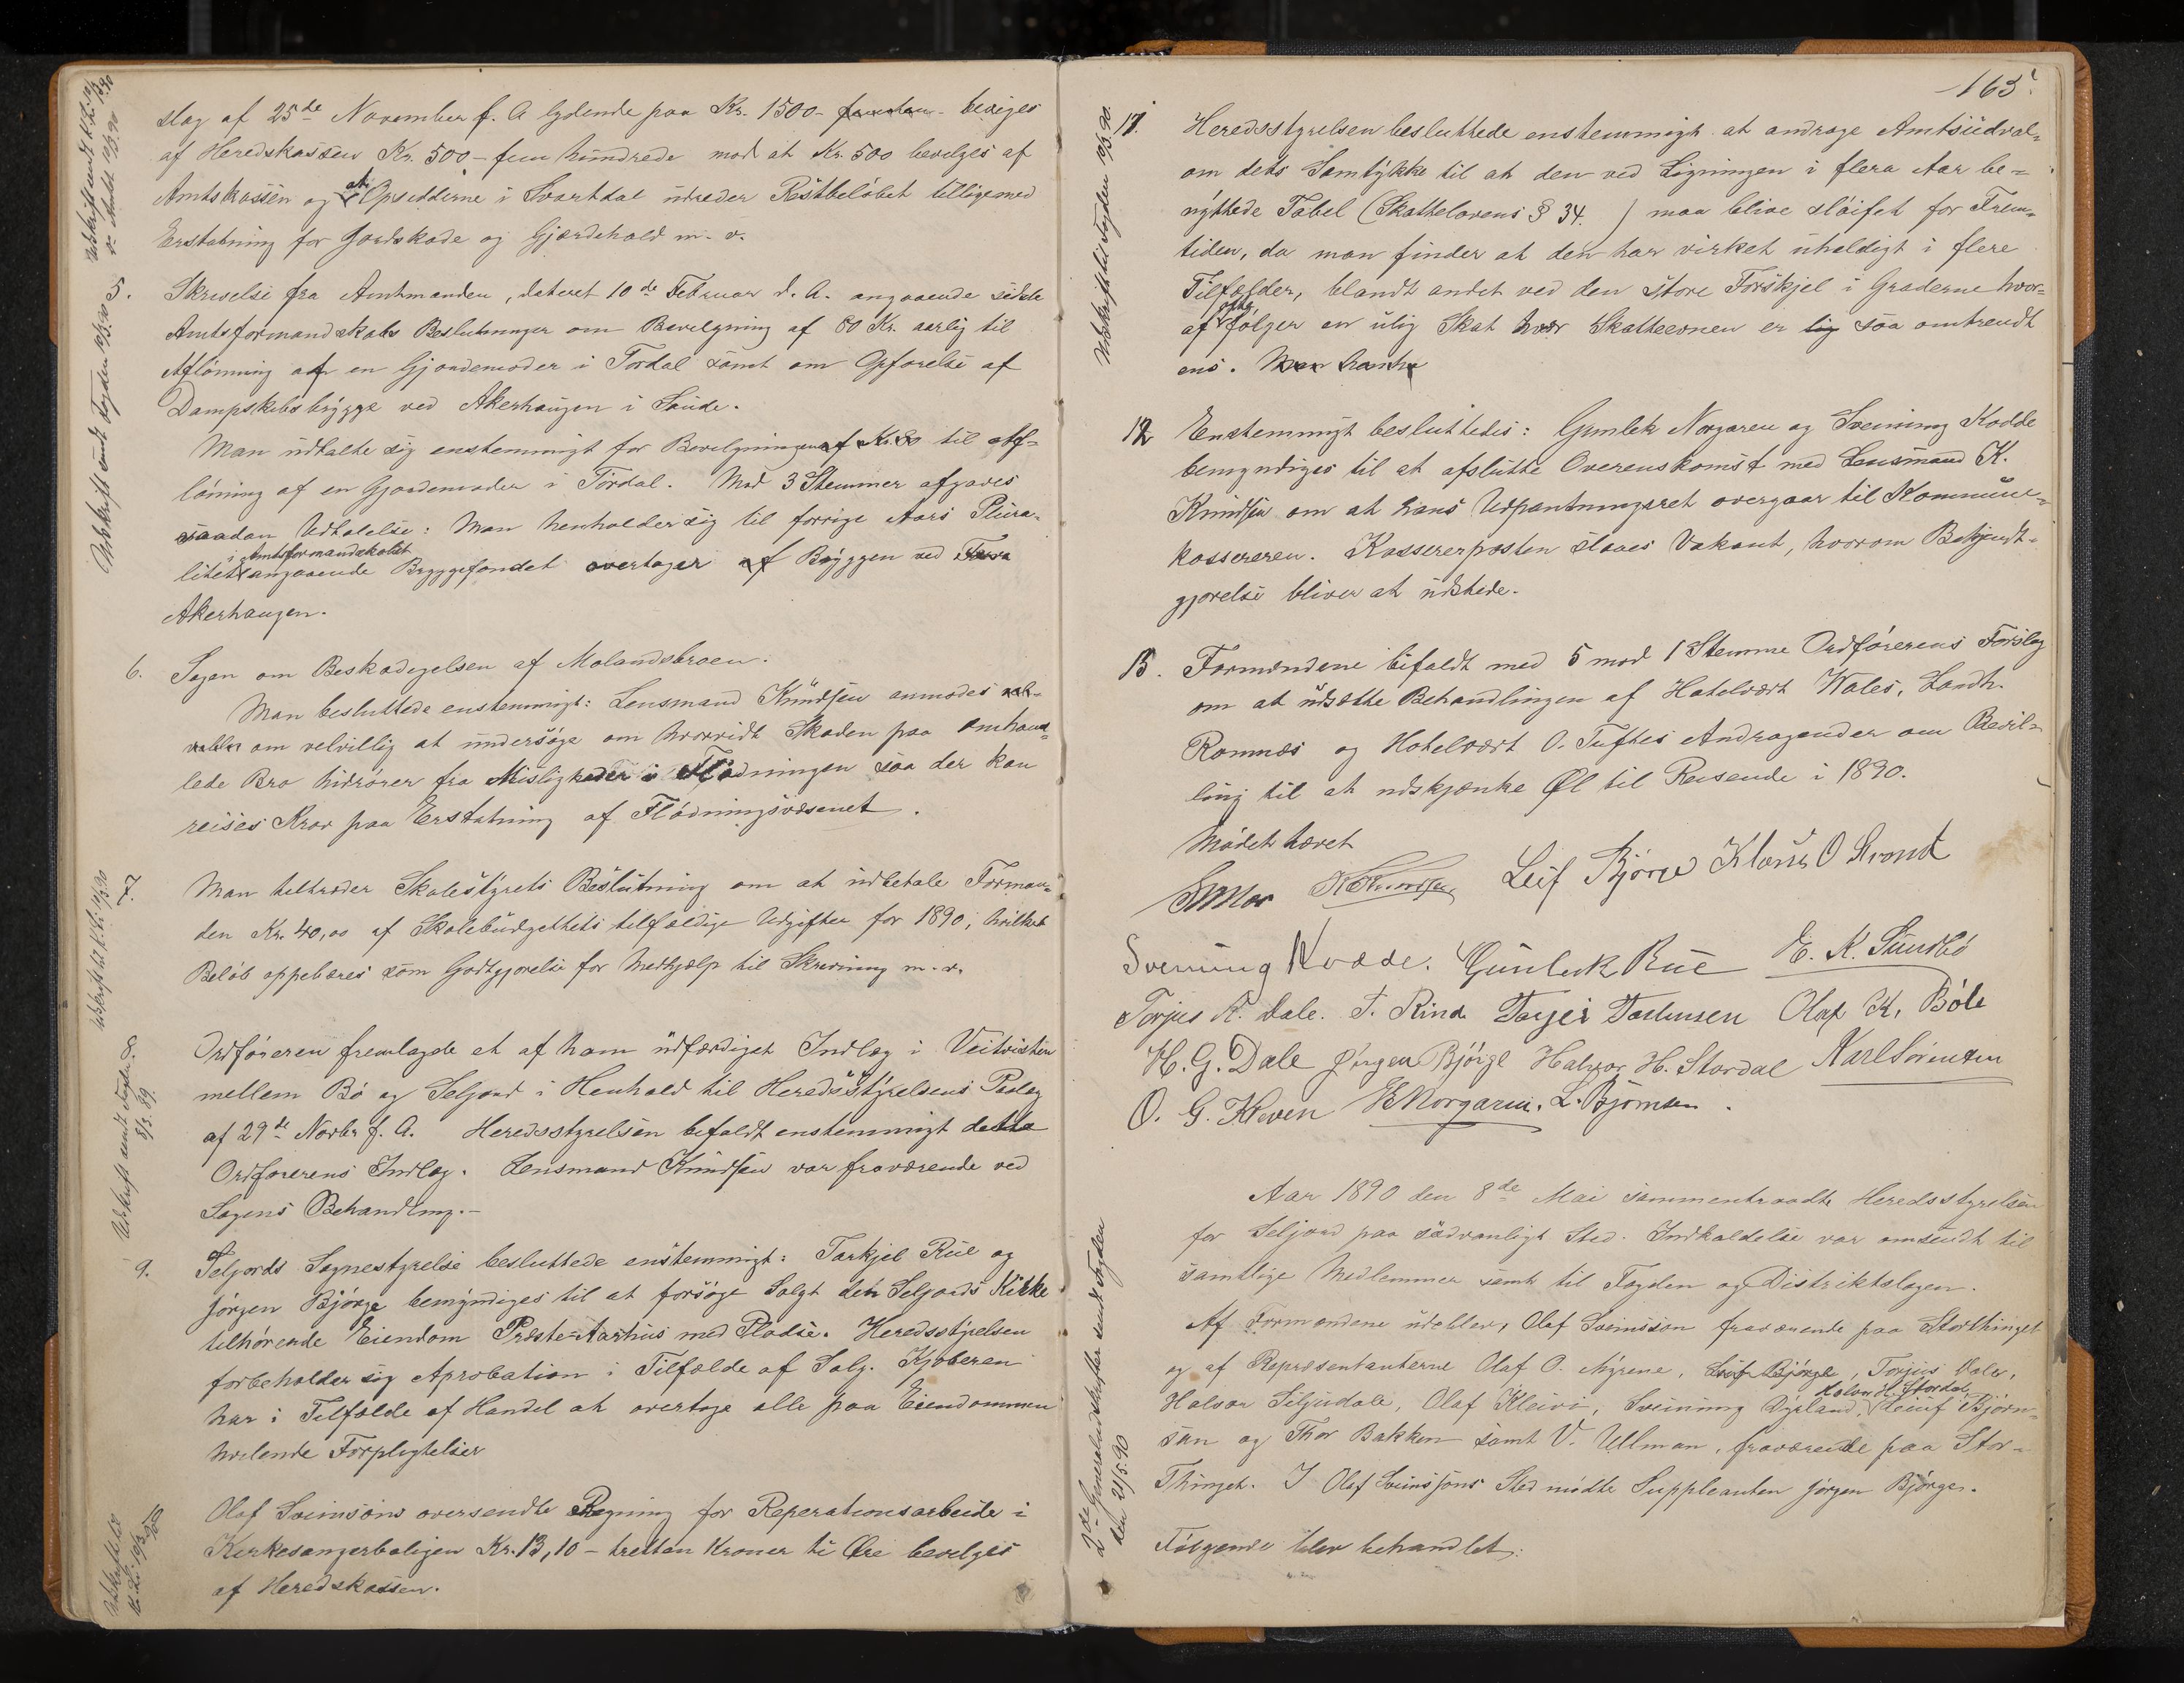 slag af 25de November f. A lydende paa Kr. 1500 - femten - beviges
af Heredskassen Kr. 500 - fem hundrede mod at Kr. 500 bevelges af
Amtskassen og at Opsidderne i Svartdal udreder Restbeløbet tilligemed
Erstatning for Jordskade og Gjærdehold m. v.
5. Skrivelse fra Amtmanden, dateret 10de Februar d. A. angaaende sidste
Amtsformandskabs Beslutninger om Bevelgning af 80 Kr. aarlig til
Aflønning af en Gjordemoder i Tørdal samt om Opførelse af
Dampskibsbrygge ved Akerhaugen i Saude.
Man udtalte sig enstemmigt for Bevilgningen af Kr. 80 til Af-
lønning af en Gjordemoder i Tørdal. Mod 3 Stemmer afgaves
saadan Udtalelse: Man henholder sig til forrige Aars Plura-
i Amtsformandskabet
litet angaaende Bryggefondet overtager af Bryggen ved
Akerhaugen.
6. Sagen om Beskadigelsen af Molandsbroen.
Man besluttede enstemmigt: Lensmand Knudsen anmodes vel-
om velvillig at undersøge om hvorvidt Skaden paa omhand-
lede Bro hidrører fra Misligheder i Flødningen saa der kan
reises Krav paa Erstatning af Flødningsvæsenet.
7. Man tiltræder Skolestyrets Beslutning om at udbetale Forman-
den Kr. 40,00 af Skolebudgettets tilfældige Udgifter for 1890, hvilket
Beløb oppebæres som Godtgjørelse for Medhjælp til Skrivning m. v.
8. Ordføreren fremlagde et af ham udfærdiget Indlæg i Veitvisten
mellem Bø og Seljord i Henhold til Heredsstyrelsens Paalæg
af 29de Novbr f. A. Heredsstyrelsen bifaldt enstemmigt dette
Ordførerens Indlæg. Lensmand Knudsen var fraværende ved
Sagens Behandling.-
9. Seljords Sognestyrelse besluttede enstemmigt: Tarkjel Rue og
Jørgen Bjørge bemyndiges til at forsøge solgt den Seljords Kirke
tilhørende Eiendom Præste-Aarhus med Pladse. Heredsstyrelsen
forbeholder sig Aprobation i Tilfælde af Salg. Kjøberen
har i Tilfælde af Handel at overtage alle paa Eiendommen
hvilende Forpligtelser
10 Olaf Sveinsøns oversendte Regning for Reperationsarbeide i
Kirkesangerboligen Kr. 13,10 - tretten Kroner ti Øre bevelges
af Heredskassen.
Udskrift sendt Fogden 10/3.90
Udskrift sendt Fogden 8/3.89.
163.
Udskrift til Fogden 10/3.90.
11. Heredsstyrelsen besluttede enstemmigt at andrage Amtsudval-
om dets Samtykke til at den ved Ligningen i flera Aar be-
nyttede Tabel (Skattelovens § 34. ) maa blive sløifet for Frem-
tiden, da man finder at den har virket uheldigt i flere
Tilfælder, blandt andet ved den store Forskjel i Graderne hvor-
ofte
af følger en ulig Skat hvor Skatteevnen er lig saa omtrendt
ens.
12 Enstemmigt besluttedes: Gunlek Norgaren og Sveinung Kodde
bemyndiges til at afslutte Overenskomst med Lensmand K.
Knudsen om at hans Udpantningsret overgaar til Kommune-
kassereren. Kassererposten slaaes Vakant, hvorom Bekjendt-
gjørelse bliver at udstede.
13. Formændene bifaldt med 5 mod 1 Stemme Ordførerens Forslag
om at udsætte Behandlingen af Hotelvært Wales, Landh.
Romnæs og Hotelvært O. Tuftes Andragender om Bevil-
ling til at udskjænke Øl til Reisende i 1890.
Mødet hævet
Leif Bjørge
Sveinung Kodde. Gunleik Rue E. K. Sundbø
Torjus A. Dale. T. Rind Olaf K. Bøle
H. G. Dale Jørgen Bjørge Halvor H. Stordal Karl Sørensen
O. G. Kleven L. Bjørnsen.
Aar 1890 den 8de Mai sammentraadte Heredsstyrelsen
for Seljord paa sædvanligt Sted. Indkaldelse var omsendt til
samtlige Medlemmer samt til Fogden og Distriktslægen.
Af Formændene udeblev, Olaf Sveinsson fraværende paa Storthinget
og af Repræsentanterne Olaf O. Myrene, Leif Bjørge, Torjus Dale,
Halvor H. Stordal
Halvor Siljudale, Olaf Kleivi, Sveinung Dyrland, Leiuf Bjørn-
sen og Thor Bakken samt V. Ullman, fraværende paa Stor-
Thinget. I Olaf Sveinssons Sted mødte Suppleanten Jørgen Bjørge.
Følgende blev behandlet:
den 21/5.90